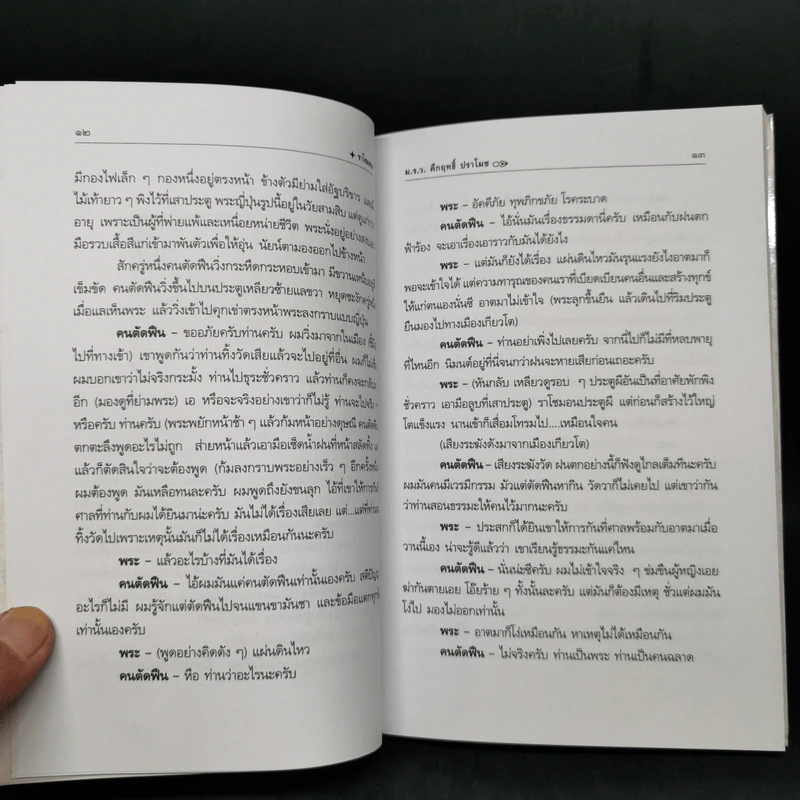 ๑๒
มีกองไฟเล็ก ๆ กองหนึ่งอยู่ตรงหน้า ข้างตัวมีย่ามใส่อัฐบริขาร และมี
ไม้เท้ายาว ๆ พิงไว้ที่เสาประตู พระญี่ปุ่นรูปนี้อยู่ในวัยสามสิบ แต่ดูแก่กว่า
อายุ เพราะเป็นผู้ที่พ่ายแพ้และเหนื่อยหน่ายชีวิต พระนั่งอยู่อย่างสงบ
มือรวบเสื้อสีแก่เข้ามาพันตัวเพื่อให้อุ่น นัยน์ตามองออกไปข้างหน้า
สักครู่หนึ่งคนตัดฟืนวิ่งกระหืดกระหอบเข้ามา มีขวานเหน็บอยู่ที่
เข็มขัด คนตัดฟืนวิ่งขึ้นไปบนประตูเหลียวซ้ายแลขวา หยุดชะงักครู่หนึ่ง
เมื่อแลเห็นพระ แล้ววิ่งเข้าไปคุกเข่าตรงหน้าพระลงกราบแบบญี่ปุ่น
คนตัดฟืน – ขออภัยครับท่านครับ ผมวิ่งมาจากในเมือง (ชี้มือ
ไปที่ทางเข้า) เขาพูดกันว่าท่านทิ้งวัดเสียแล้วจะไปอยู่ที่อื่น ผมก็ไม่เชื่อ
ผมบอกเขาว่าไม่จริงกระมั้ง ท่านไปธุระชั่วคราว แล้วท่านก็คงจะกลับ
อีก (มองดูที่ย่ามพระ) เอ หรือจะจริงอย่างเขาว่าก็ไม่รู้ ท่านจะไปจริง ๆ
หรือครับ ท่านครับ (พระพยักหน้าช้า ๆ แล้วก้มหน้าอย่างดุษณี คนตัดฟืน
ตกตะลึงพูดอะไรไม่ถูก ส่ายหน้าแล้วเอามือเช็ดน้ำฝนที่หน้าสลัดทิ้ง
แล้วก็ตัดสินใจว่าจะต้องพูด (ก้มลงกราบพระอย่างเร็ว ๆ อีกครั้งหนึ่ง
ผมต้องพูด มันเหลือทนละครับ ผมพูดถึงยังขนลุก ไอ้ที่เขาให้การกัน
ศาลที่ท่านกับผมได้ยินมาน่ะครับ มันไม่ได้เรื่องเสียเลย แต่...แต่ที่ท่าน
ทิ้งวัดไปเพราะเหตุนั้นมันก็ไม่ได้เรื่องเหมือนกันนะครับ
พระ – แล้วอะไรบ้างที่มันได้เรื่อง
คนตัดฟืน – ไอ้ผมมันแค่คนตัดฟืนเท่านั้นเองครับ สติปัญญา
อะไรก็ไม่มี ผมรู้จักแต่ตัดฟืนไปจนแขนขามันชา และข้อมือแตกทุกที
เท่านั้นเองครับ
พระ – (พูดอย่างคิดดัง ๆ) แผ่นดินไหว
คนตัดฟืน – หือ ท่านว่าอะไรนะครับ
ม.ร.ว. คึกฤทธิ์ ปราโมช
๑๓
พระ – อัคคีภัย ทุพภิกขภัย โรคระบาด
คนตัดฟืน – ไอ้นั่นมันเรื่องธรรมดานี่ครับ เหมือนกับฝนตก
ฟ้าร้อง จะเอาเรื่องเอาราวกับมันได้ยังไง
พระ – แต่มันก็ยังได้เรื่อง แผ่นดินไหวมันรุนแรงยังไงอาตมาก็
พอจะเข้าใจได้ แต่ความทารุณของคนเราที่เบียดเบียนคนอื่นและสร้างทุกข์
ให้แก่ตนเองนั่นซี อาตมาไม่เข้าใจ (พระลุกขึ้นยืน แล้วเดินไปที่ริมประตู
ยืนมองไปทางเมืองเกียวโต)
คนตัดฟืน – ท่านอย่าเพิ่งไปเลยครับ จากนี้ไปก็ไม่มีที่หลบพายุ
ที่ไหนอีก นิมนต์อยู่ที่นี่จนกว่าฝนจะหายเสียก่อนเถอะครับ
พระ – (หันกลับ เหลียวดูรอบ ๆ ประตูผีอันเป็นที่อาศัยพักพิง
ชั่วคราว เอามือลูบที่เสาประตู) ราโชมอนประตูผี แต่ก่อนก็สร้างไว้ใหญ่
โตแข็งแรง นานเข้าก็เสื่อมโทรมไป....เหมือนใจคน
(เสียงระฆังดังมาจากเมืองเกียวโต)
คนตัดฟืน – เสียงระฆังวัด ฝนตกอย่างนี้ก็ฟังดูไกลเต็มทีนะครับ
ผมมันคนมีเวรมีกรรม มัวแต่ตัดฟืนหากิน วัดวาก็ไม่เคยไป แต่เขาว่ากัน
ว่าท่านสอนธรรมะให้คนไว้มากนะครับ
พระ – ประสกก็ได้ยินเขาให้การกันที่ศาลพร้อมกับอาตมาเมื่อ
วานนี้เอง น่าจะรู้ดีแล้วว่า เขาเรียนรู้ธรรมะกันแค่ไหน
คนตัดฟืน – นั่นน่ะซีครับ ผมไม่เข้าใจจริง ๆ ข่มขืนผู้หญิงเอย
ฆ่ากันตายเอย โอ๊ยร้าย ๆ ทั้งนั้นละครับ แต่มันก็ต้องมีเหตุ ชั่วแต่ผมมัน
โง่ไป มองไม่ออกเท่านั้น
พระ – อาตมาก็โง่เหมือนกัน หาเหตุไม่ได้เหมือนกัน
คนตัดฟืน – ไม่จริงครับ ท่านเป็นพระ ท่านเป็นคนฉลาด